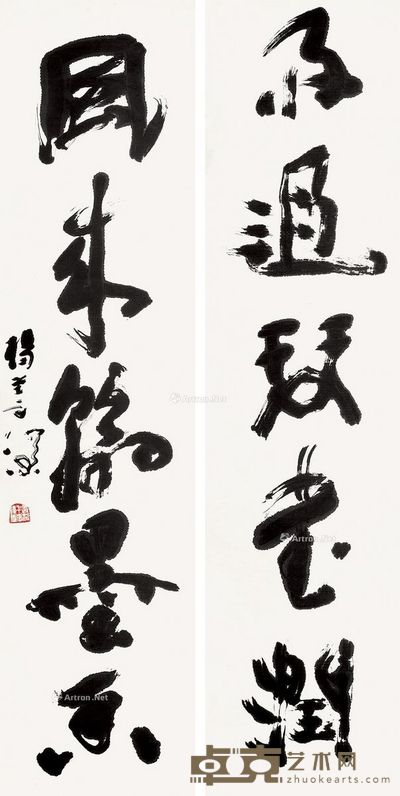 雨過琴書潤
風來翰墨香
楊善深
Artron.Net
Artron.Net
Artron.Net
Artron.Net
卓克艺术网
zhuokearts.com